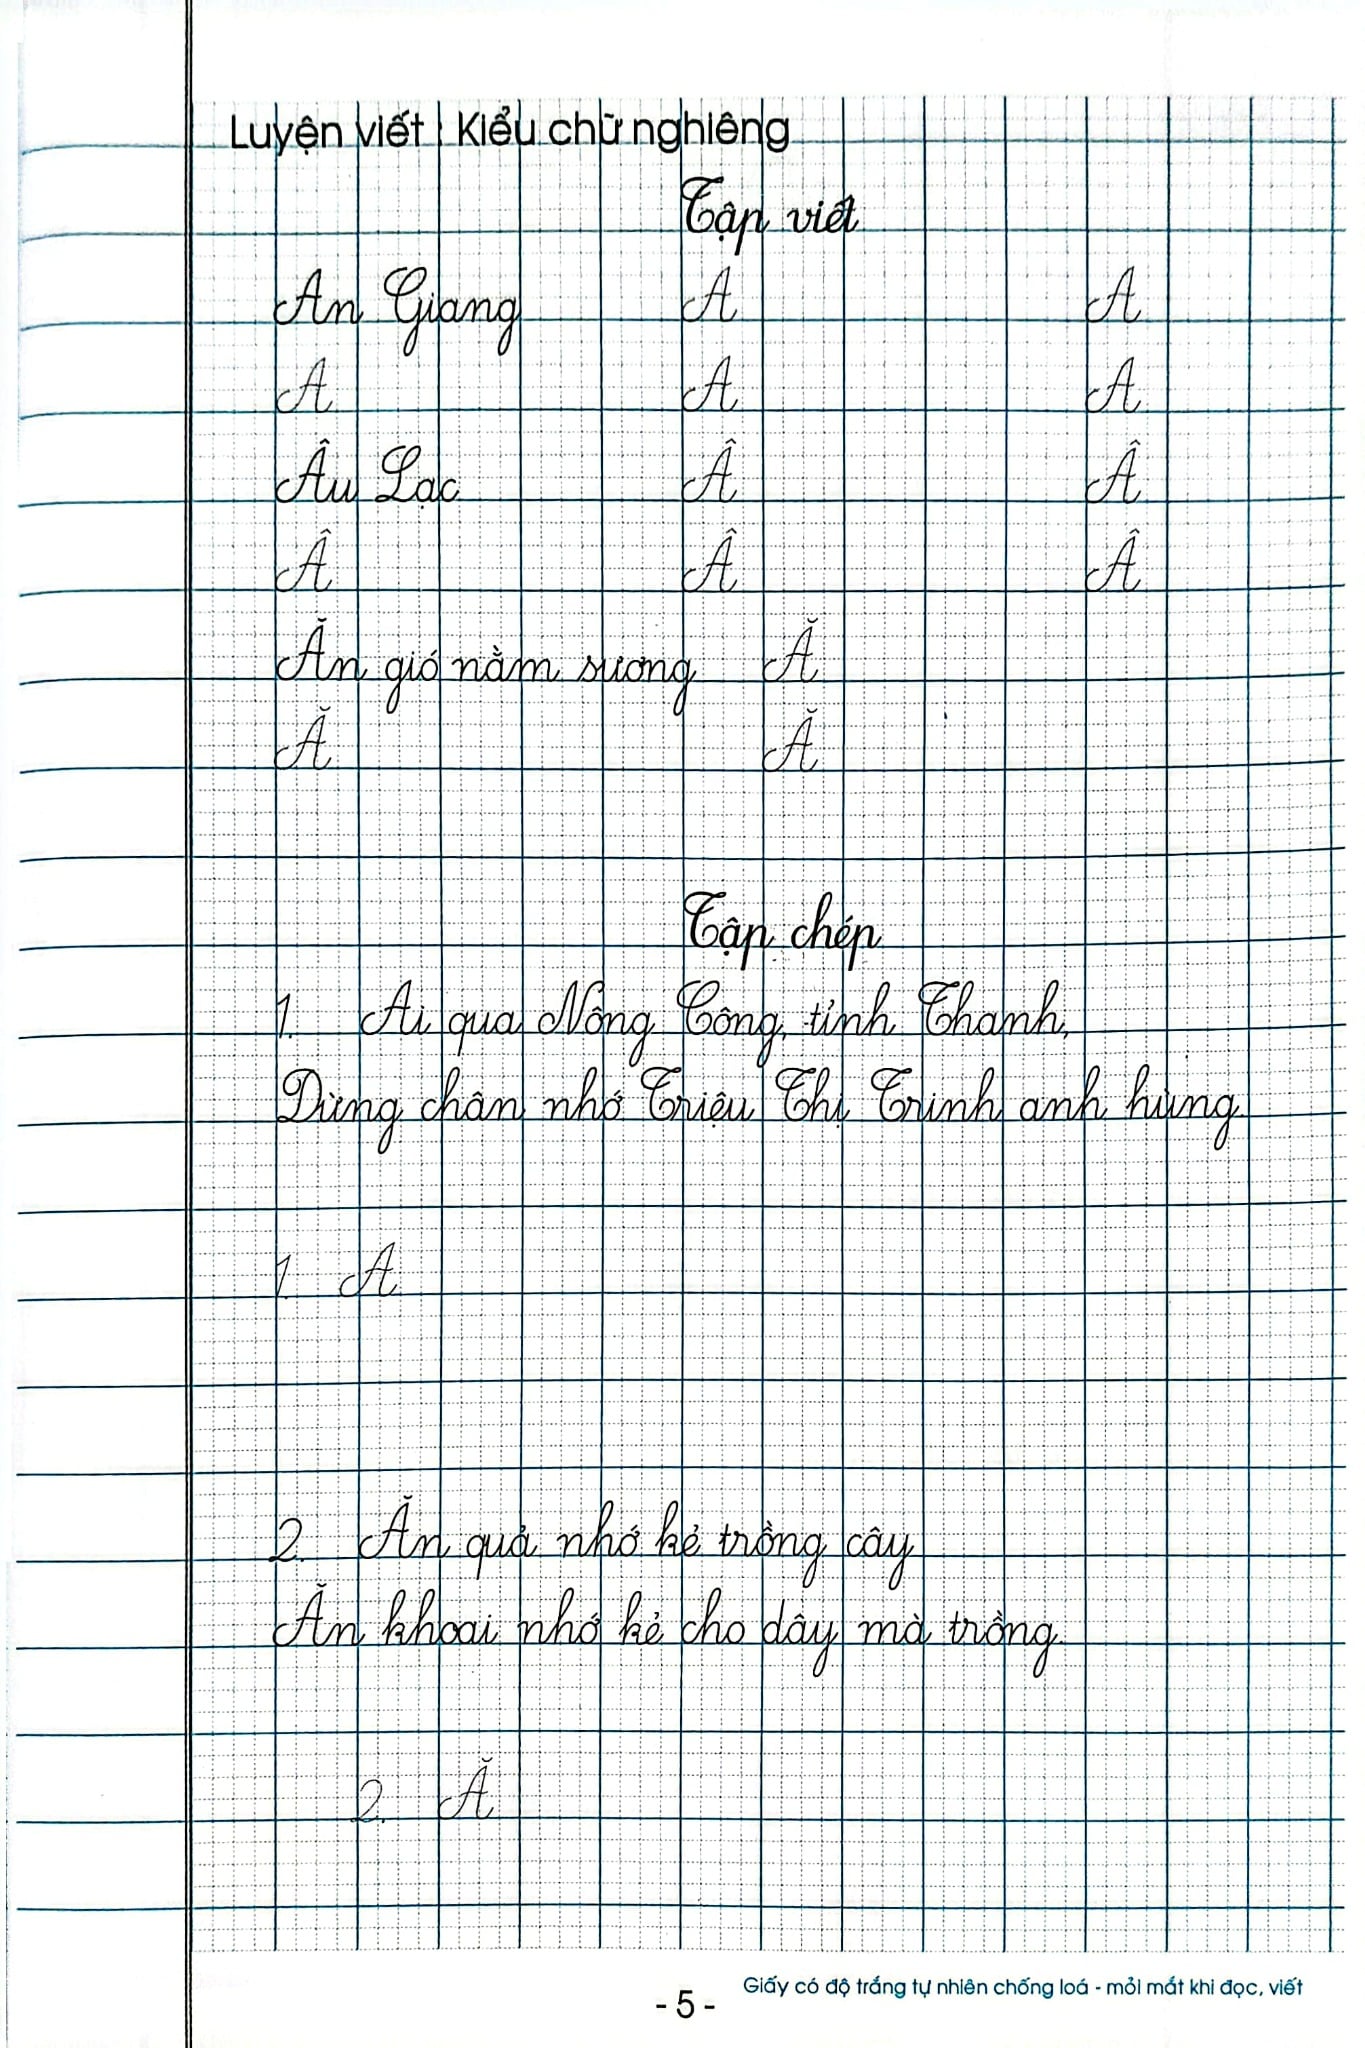 Luyện viết : Kiểu chữ nghiêng
Tập viết
An Giang A A
A A A
Âu Lạc Â Â
Â Â Â
Ăn gió nằm sương Ă
Ă Ă
Tập chép
1. Ai qua Nông Cống, tỉnh Thanh,
Dừng chân nhớ Triệu Thị Trinh anh hùng.
1. A
2. Ăn quả nhớ kẻ trồng cây
Ăn khoai nhớ kẻ cho dây mà trồng.
2. Ă
Giấy có độ trắng tự nhiên chống loá - mỏi mắt khi đọc, viết
- 5 -